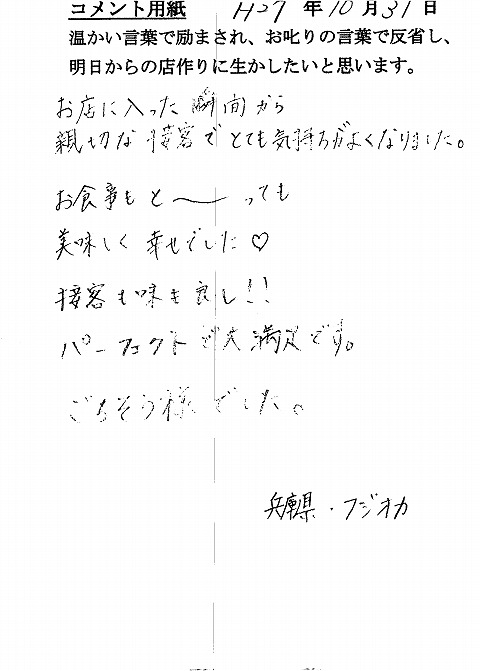 コメント用紙 H27年10月31日
温かい言葉で励まされ、お叱りの言葉で反省し、
明日からの店作りに生かしたいと思います。
お店に入った瞬間から
親切な接客でとても気持ちがよくなりました。
お食事もと〜っても
美味しく幸せでした♡
接客も味も良し!!
パーフェクトで大満足です。
ごちそう様でした。
兵庫県・フジオカ